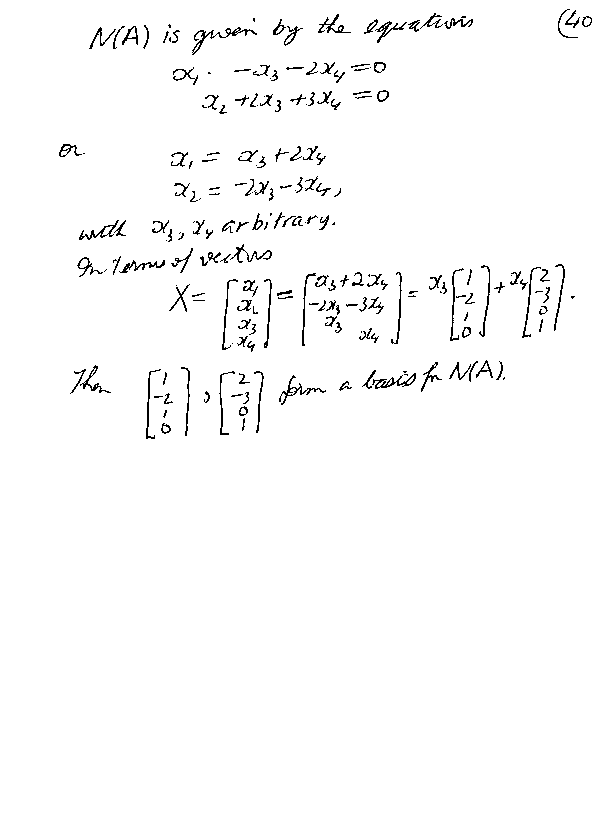 N(A) is given by the equations (40
x₁ - x₃ - 2x₄ = 0
x₂ + 2x₃ + 3x₄ = 0
or x₁ = x₃ + 2x₄
x₂ = -2x₃ - 3x₄,
with x₃, x₄ arbitrary.
In terms of vectors
X = [x₁ x₂ x₃ x₄] = [x₃+2x₄ -2x₃-3x₄ x₃ x₄] = x₃ [1 -2 1 0] + x₄ [2 -3 0 1].
Then [1 -2 1 0], [2 -3 0 1] form a basis for N(A).